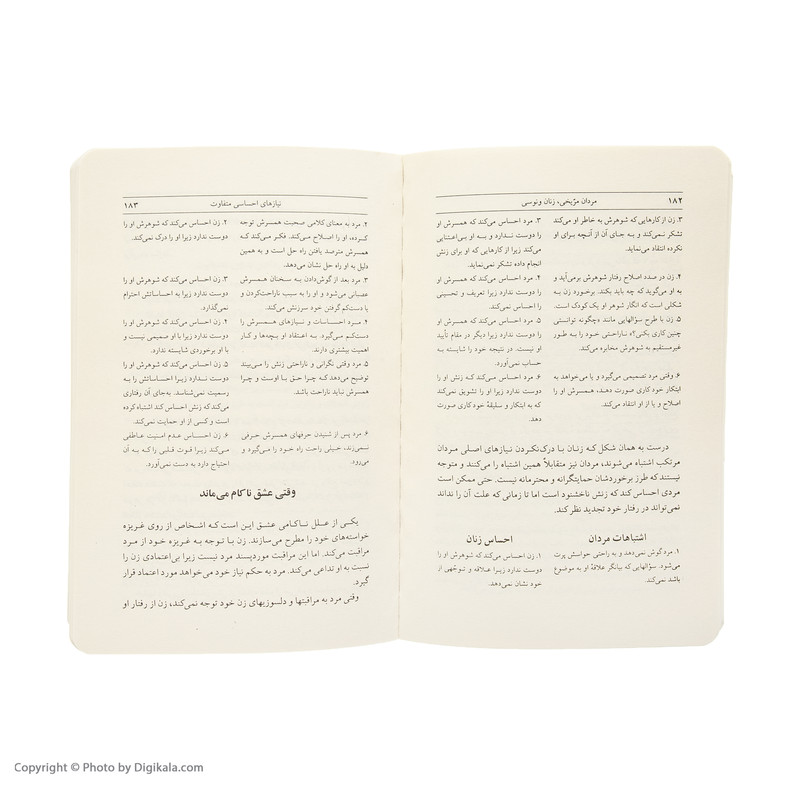 ۱۸۲ مردان مرّیخی، زنان ونوسی
۳. زن از کارهایی که شوهرش به خاطر او می‌کند
تشکر نمی‌کند و به جای آن از آنچه برای او
نکرده انتقاد می‌نماید.
۳. مرد احساس می‌کند که همسرش او
را دوست ندارد و به او بی‌اعتنایی
می‌کند زیرا از کارهایی که او برای زنش
انجام داده تشکر نمی‌نماید.
۴. زن در صدد اصلاح رفتار شوهرش برمی‌آید و
به او می‌گوید که چه باید بکند. برخورد زن به
شکلی است که انگار شوهر او یک کودک است.
۴. مرد احساس می‌کند که همسرش او
را دوست ندارد زیرا تعریف و تحسینی
را احساس نمی‌کند.
۵. زن با طرح سؤالهایی مانند «چگونه توانستی
چنین کاری بکنی؟» ناراحتی خود را به طور
غیرمستقیم به شوهرش مخابره می‌کند.
۵. مرد احساس می‌کند که همسرش او
را دوست ندارد زیرا دیگر در مقام تأیید
او نیست. در نتیجه خود را شایسته به
حساب نمی‌آورد.
۶. وقتی مرد تصمیمی می‌گیرد و یا می‌خواهد به
ابتکار خود کاری صورت دهد، همسرش او را
اصلاح و یا از او انتقاد می‌کند.
۶. مرد احساس می‌کند که زنش او را
دوست ندارد زیرا او را تشویق نمی‌کند
که به ابتکار و سلیقهٔ خود کاری صورت
دهد.
درست به همان شکل که زنان با درک‌نکردن نیازهای اصلی مردان
مرتکب اشتباه می‌شوند، مردان نیز متقابلاً همین اشتباه را می‌کنند و متوجه
نیستند که طرز برخوردشان حمایتگرانه و محترمانه نیست. حتی ممکن است
مردی احساس کند که زنش ناخشنود است اما تا زمانی که علت آن را نداند
نمی‌تواند در رفتار خود تجدید نظر کند.
اشتباهات مردان
۱. مرد گوش نمی‌دهد و به راحتی حواسش پرت
می‌شود. سؤالهایی که بیانگر علاقهٔ او به موضوع
باشد نمی‌کند.
احساس زنان
۱. زن احساس می‌کند که شوهرش او را
دوست ندارد زیرا علاقه و توجّهی از
خود نشان نمی‌دهد.
نیازهای احساسی متفاوت ۱۸۳
۲. مرد به معنای کلامی صحبت همسرش توجه
کرده، او را اصلاح می‌کند. فکر می‌کند که
همسرش مترصد یافتن راه حل است و به همین
دلیل به او راه حل نشان می‌دهد.
۲. زن احساس می‌کند که شوهرش او را
دوست ندارد زیرا او را درک نمی‌کند.
۳. مرد بعد از گوش‌دادن به سخنان همسرش
عصبانی می‌شود و او را به سبب ناراحت‌کردن و
یا دست‌کم گرفتن خود سرزنش می‌کند.
۳. زن احساس می‌کند که شوهرش او را
دوست ندارد زیرا به احساساتش احترام
نمی‌گذارد.
۴. مرد احساسات و نیازهای همسرش را
دست‌کم می‌گیرد. به اعتقاد او بچه‌ها و کار
اهمیت بیشتری دارند.
۴. زن احساس می‌کند که شوهرش او را
دوست ندارد زیرا با او صمیمی نیست و
با او برخوردی شایسته ندارد.
۵. مرد وقتی نگرانی و ناراحتی زنش را می‌بیند
توضیح می‌دهد که چرا حق با اوست و چرا
همسرش نباید ناراحت باشد.
۵. زن احساس می‌کند که شوهرش او را
دوست ندارد زیرا احساساتش را به
رسمیت نمی‌شناسد. به‌جای آن رفتاری
می‌کند که زنش احساس کند اشتباه کرده
است و کسی از او حمایت نمی‌کند.
۶. مرد پس از شنیدن حرفهای همسرش حرفی
نمی‌زند، خیلی راحت راه خود را می‌گیرد و
می‌رود.
۶. زن احساس عدم امنیت عاطفی
می‌کند زیرا قوت قلبی را که به آن
احتیاج دارد به دست نمی‌آورد.
وقتی عشق ناکام می‌ماند
یکی از علل ناکامی عشق این است که اشخاص از روی غریزه
خواسته‌های خود را مطرح می‌سازند. زن با توجه به غریزه خود از مرد
مراقبت می‌کند. اما این مراقبت موردپسند مرد نیست زیرا بی‌اعتمادی زن را
نسبت به او تداعی می‌کند. مرد به حکم نیاز خود می‌خواهد مورد اعتماد قرار
گیرد.
وقتی مرد به مراقبتها و دلسوزیهای زن خود توجه نمی‌کند، زن از رفتار او
Copyright © Photo by Digikala.com